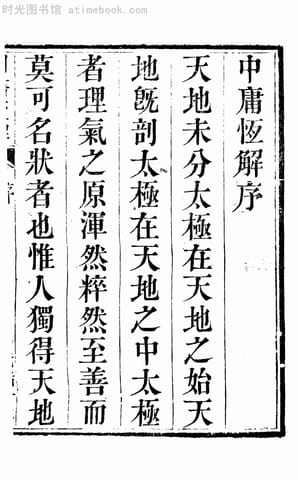 时光图书馆 — atimebook.com
中庸恆解序
天地未分太極在天地之始天
地既剖太極在天地之中太極
者理氣之原渾然粹然至善而
莫可名狀者也惟人獨得天地
序